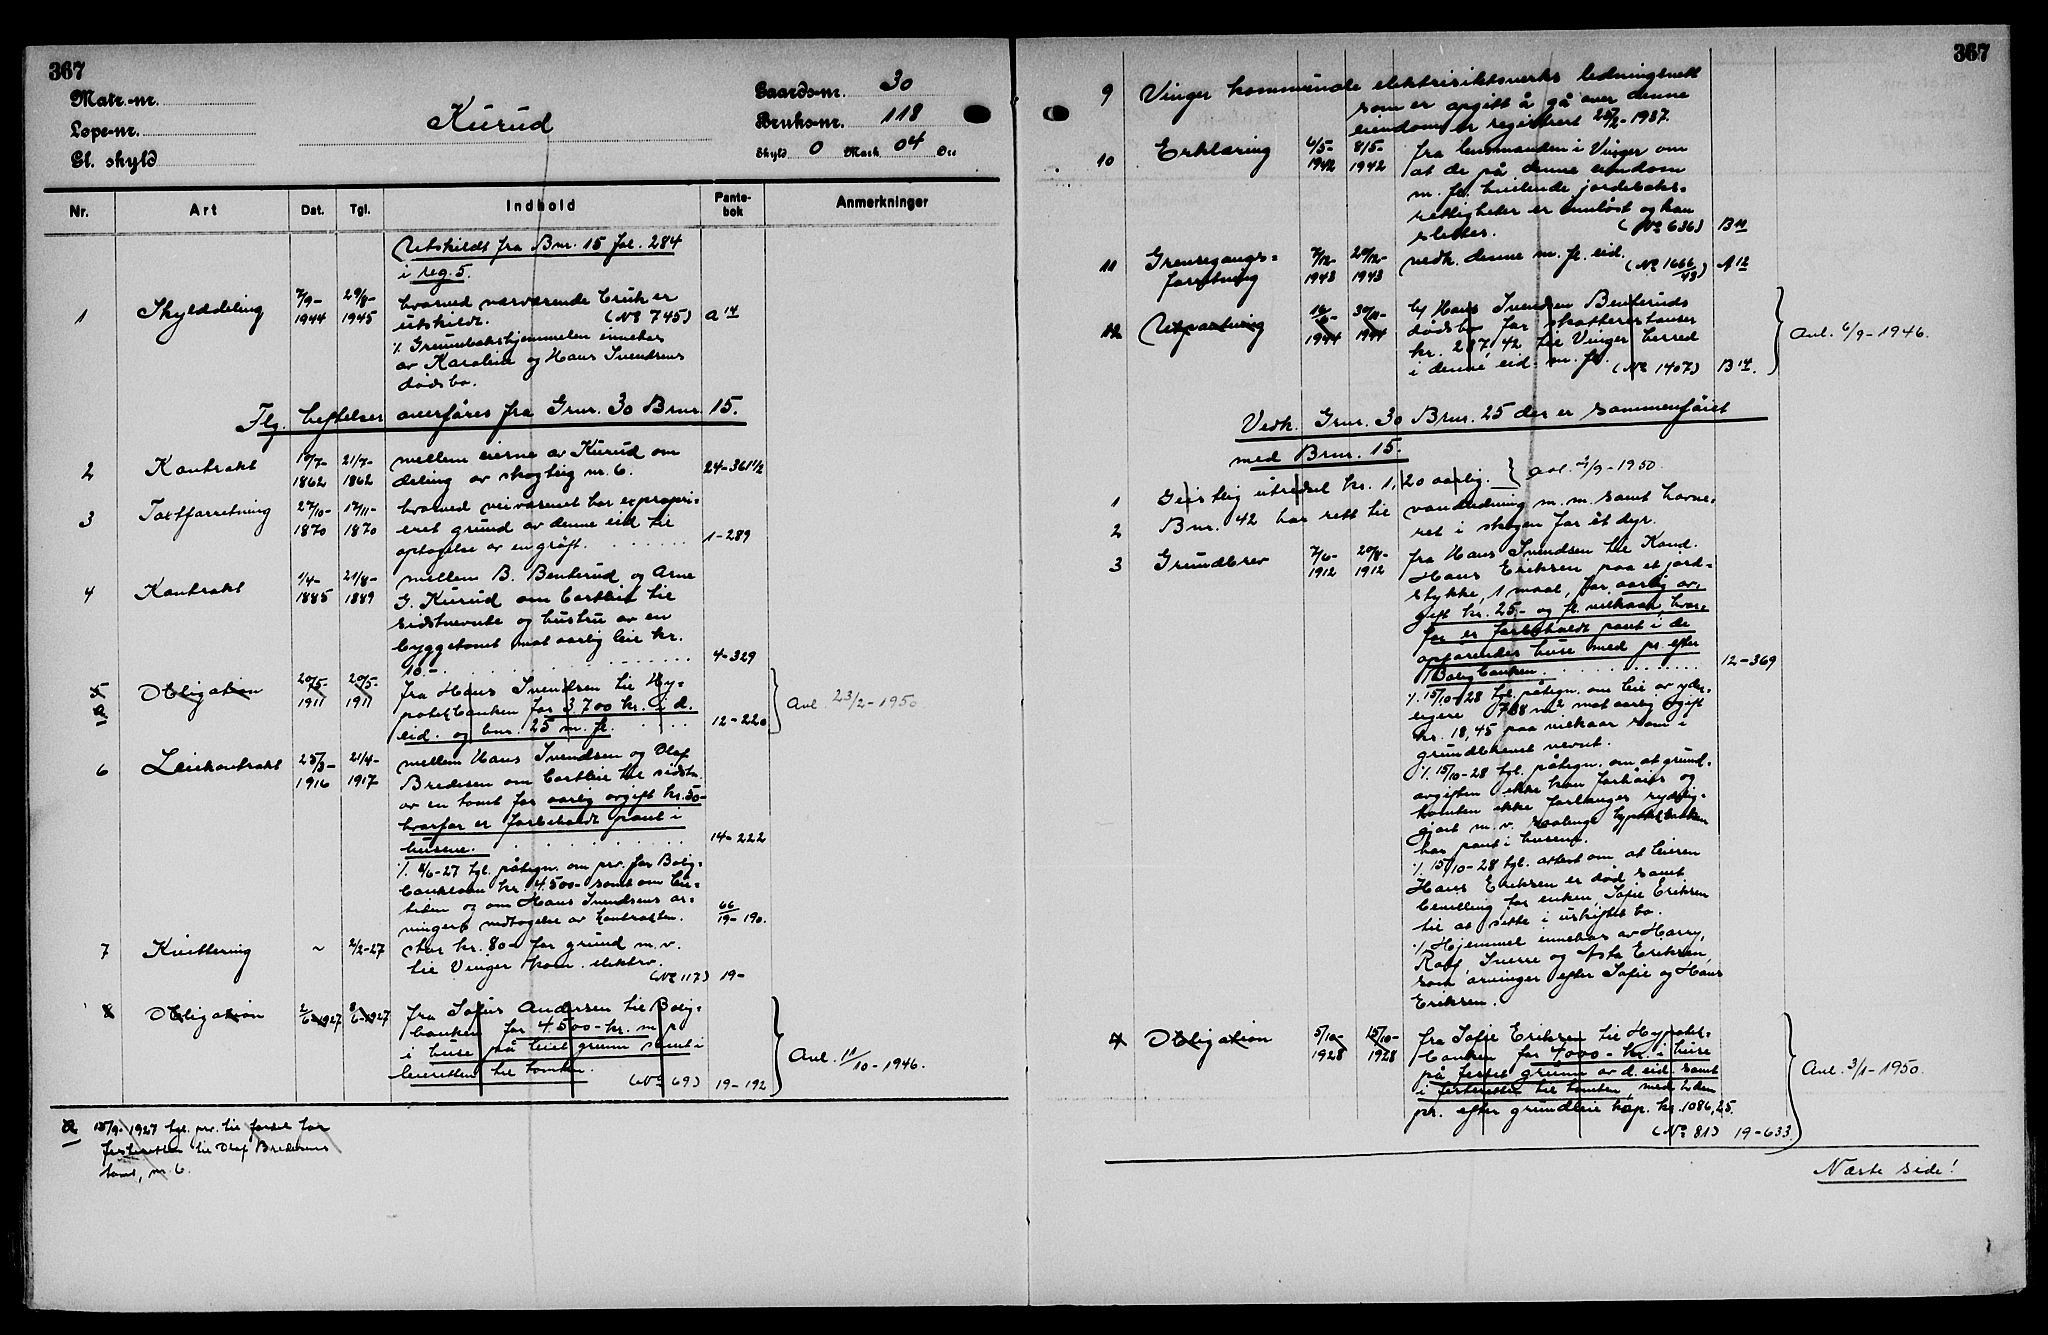 367
Matr.-nr.
Løpe-nr.
Gl. skyld
Kurud
Gaards-nr. 30
Bruks-nr. 118
Skyld 0 Mark 04 Øre
Nr. Art Dat. Tgl. Indhold Pante-bok Anmerkninger
Utskildt fra Bnr. 15 fol. 284
i reg. 5.
1 Skylddeling 7/9-1944 29/8-1945 hvorved nærværende bruk er
utskildt. (No 745) A 14
./. Grunnbokshjemmelen innehas
av Karoline og Hans Svendsens
dødsbo.
Flg. heftelser overføres fra Gnr. 30 Bnr. 15.
2 Kontrakt 19/7-1862 21/7-1862 mellem eierne av Kurud om
deling av skogteig nr. 6. 24-361 1/2
3 Taxtforretning 27/10-1870 17/11-1870 hvorved veivæsenet har expropri-
eret grund av denne eid til
optagelse av en grøft. 1-289
4 Kontrakt 1/4-1885 21/8-1889 mellem B. Benterud og Arne
G. Kurud om bortleie til
sidstnevnte og hustru av en
byggetomt mot aarlig leie kr.
10.- 4-329
5 Obligation 20/5-1911 20/5-1911 fra Hans Svendsen til Hy-
potekbanken for 3700 kr. i d.
eid. og bnr. 25 m. fl. 12-220
Avl. 23/2-1950
6 Leiekontrakt 25/3-1916 21/4-1917 mellem Hans Svendsen og Olaf
Bredesen om bortleie til sidstn.
av en tomt for aarlig avgift kr. 50-
hvorfor er forbeholdt pant i
husene. 14-222
./. 8/6-27 tgl. påtegn. om prv. for Bolig-
banklaan kr. 4.500- samt om leie-
tiden og om Hans Svendsens ar-
vingers vedtagelse av kontrakten. 66/19-190.
7 Kvittering ~ 2/2-27 stor kr. 80- for grund m.v.
til Vinger kom. elektrv.
(No 117) 19-
8 Obligation 2/6-1927 8/6-1927 fra Sofus Andersen til Bolig-
banken for 4.500- kr. m. p.
i huse på leiet grunn samt i
leieretten til tomten. (No 69) 19-192
Avl. 11/10-1946.
15/9-1927 tgl. prv. til fordel for
festeretten til Olaf Bredesens
tomt, nr. 6.
367
9 Vinger kommunale elektrisitetsverks ledningsnett
som er opgitt å gå over denne
eiendom er registrert 25/2-1937.
10 Erklæring 6/5-1942 8/5-1942 fra lensmanden i Vinger om
at de på denne eiendom
m. fl. hvilende jordebruks-
rettigheter er innløst og kan
slettes. (No 636) B 11
11 Grensegangs-
forretning 7/12-1943 29/12-1943 vedk. denne m. fl. eid.
(No 1666/43) A 12
12 Utpantning 16/6-1944 30/11-1944 hj Hans Svendsen Benteruds
dødsbo for skatterestanser
kr. 287,42 til Vinger herred
i denne eid. m. fl. (No 1407) B 14.
Avl. 6/9-1946.
Vedk. Gnr. 30 Bnr. 25 der er sammenføiet
med Bnr. 15.
1 Geistlig utredsel kr. 1,20 aarlig. Avl. 2/9-1950.
2 Bnr. 42 har rett til vannledning m. m. samt havne-
ret i skogen for ét dyr.
3 Grundbrev 7/6-1912 20/8-1912 fra Hans Svendsen til Kond.
Hans Eriksen paa et jord-
stykke, 1 maal, for aarlig av-
gift kr. 25,- og fl. vilkaar, hvor-
for er forbeholdt pant i de
opførendes huse med pr. efter
Boligbanken. 12-369
./. 15/10-28 tgl. påtegn. om leie av yder-
ligere 738 m2 mot aarlig avgift
kr. 18,45 paa vilkaar som i
grundbrevet nevnt.
./. 15/10-28 tgl. påtegn. om at grund-
avgiften ikke kan forhøies og
tomten ikke forlanges ryddig-
gjort m.v. saalenge hypotekbanken
har pant i husene.
./. 15/10-28 tgl. attest om at leieren
Hans Eriksen er død samt
bevilling for enken Sofie Eriksen
til at sitte i uskiftet bo.
./. Hjemmel innehas av Harry,
Rolf, Sverre og Asta Eriksen,
som arvinger efter Sofie og Hans
Eriksen.
4 Obligation 5/10-1928 15/10-1928 fra Sofie Eriksen til Hypotek-
banken for 4000- kr. i huse
på festet grunn av d. eid. samt
i festeretten til tomten med uden
pr. efter grundleie kap. kr. 1086,25.
(No 81) 19-633.
Avl. 3/1-1950.
Næste side!